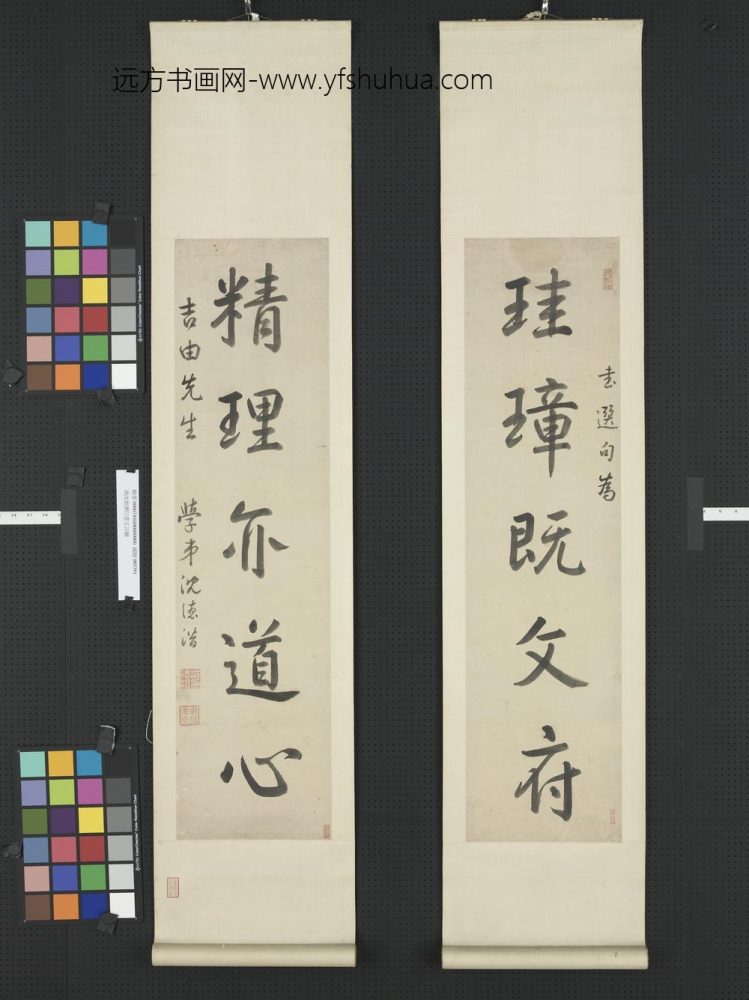 远方书画网-www.yfshuhua.com
珪璋既文府
书選句為
精理亦道心
吉由先生 學弟沈德潜